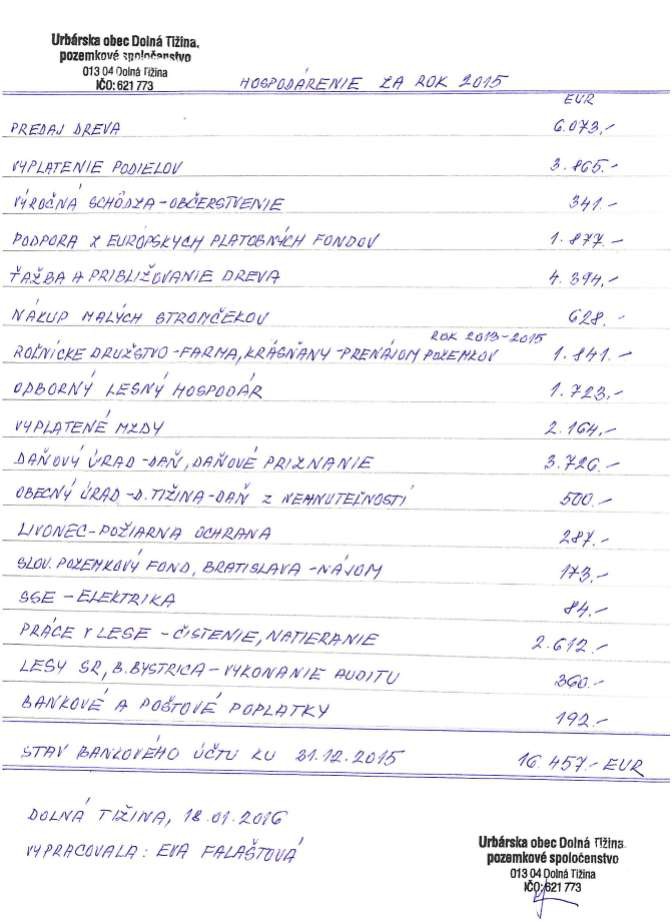 Urbárska obec Dolná Tižina,
pozemkové spoločenstvo
013 04 Dolná Tižina
IČO: 621 773
HOSPODÁRENIE ZA ROK 2015
EUR
PREDAJ DREVA 6.073,-
VYPLATENIE PODIELOV 3.865.-
VÝROČNÁ SCHÔDZA-OBČERSTVENIE 341.-
PODPORA Z EURÓPSKYCH PLATOBNÝCH FONDOV 1.877.-
ŤAŽBA A PRIBLIŽOVANIE DREVA 4.394,-
NÁKUP MALÝCH STROMČEKOV 628.-
ROK 2013-2015
ROĽNÍCKE DRUŽSTVO-FARMA, KRÁSŇANY-PRENÁJOM POZEMKOV 1.841.-
ODBORNÝ LESNÝ HOSPODÁR 1.723.-
VYPLATENÉ MZDY 2.164.-
DAŇOVÝ ÚRAD-DAŇ, DAŇOVÉ PRIZNANIE 3.726.-
OBECNÝ ÚRAD-D.TIŽINA-DAŇ Z NEHNUTEĽNOSTÍ 500.-
LIVONEC-POŽIARNA OCHRANA 287.-
SLOV. POZEMKOVÝ FOND, BRATISLAVA-NÁJOM 173.-
SSE-ELEKTRIKA 84.-
PRÁCE V LESE-ČISTENIE, NATIERANIE 2.612.-
LESY SR, B.BYSTRICA-VYKONANIE AUDITU 360.-
BANKOVÉ A POŠTOVÉ POPLATKY 192.-
STAV BANKOVÉHO ÚČTU KU 31.12.2015 16.457.-EUR
DOLNÁ TIŽINA, 18.01.2016
VYPRACOVALA: EVA FALAŠTOVÁ
Urbárska obec Dolná Tižina,
pozemkové spoločenstvo
013 04 Dolná Tižina
IČO: 621 773